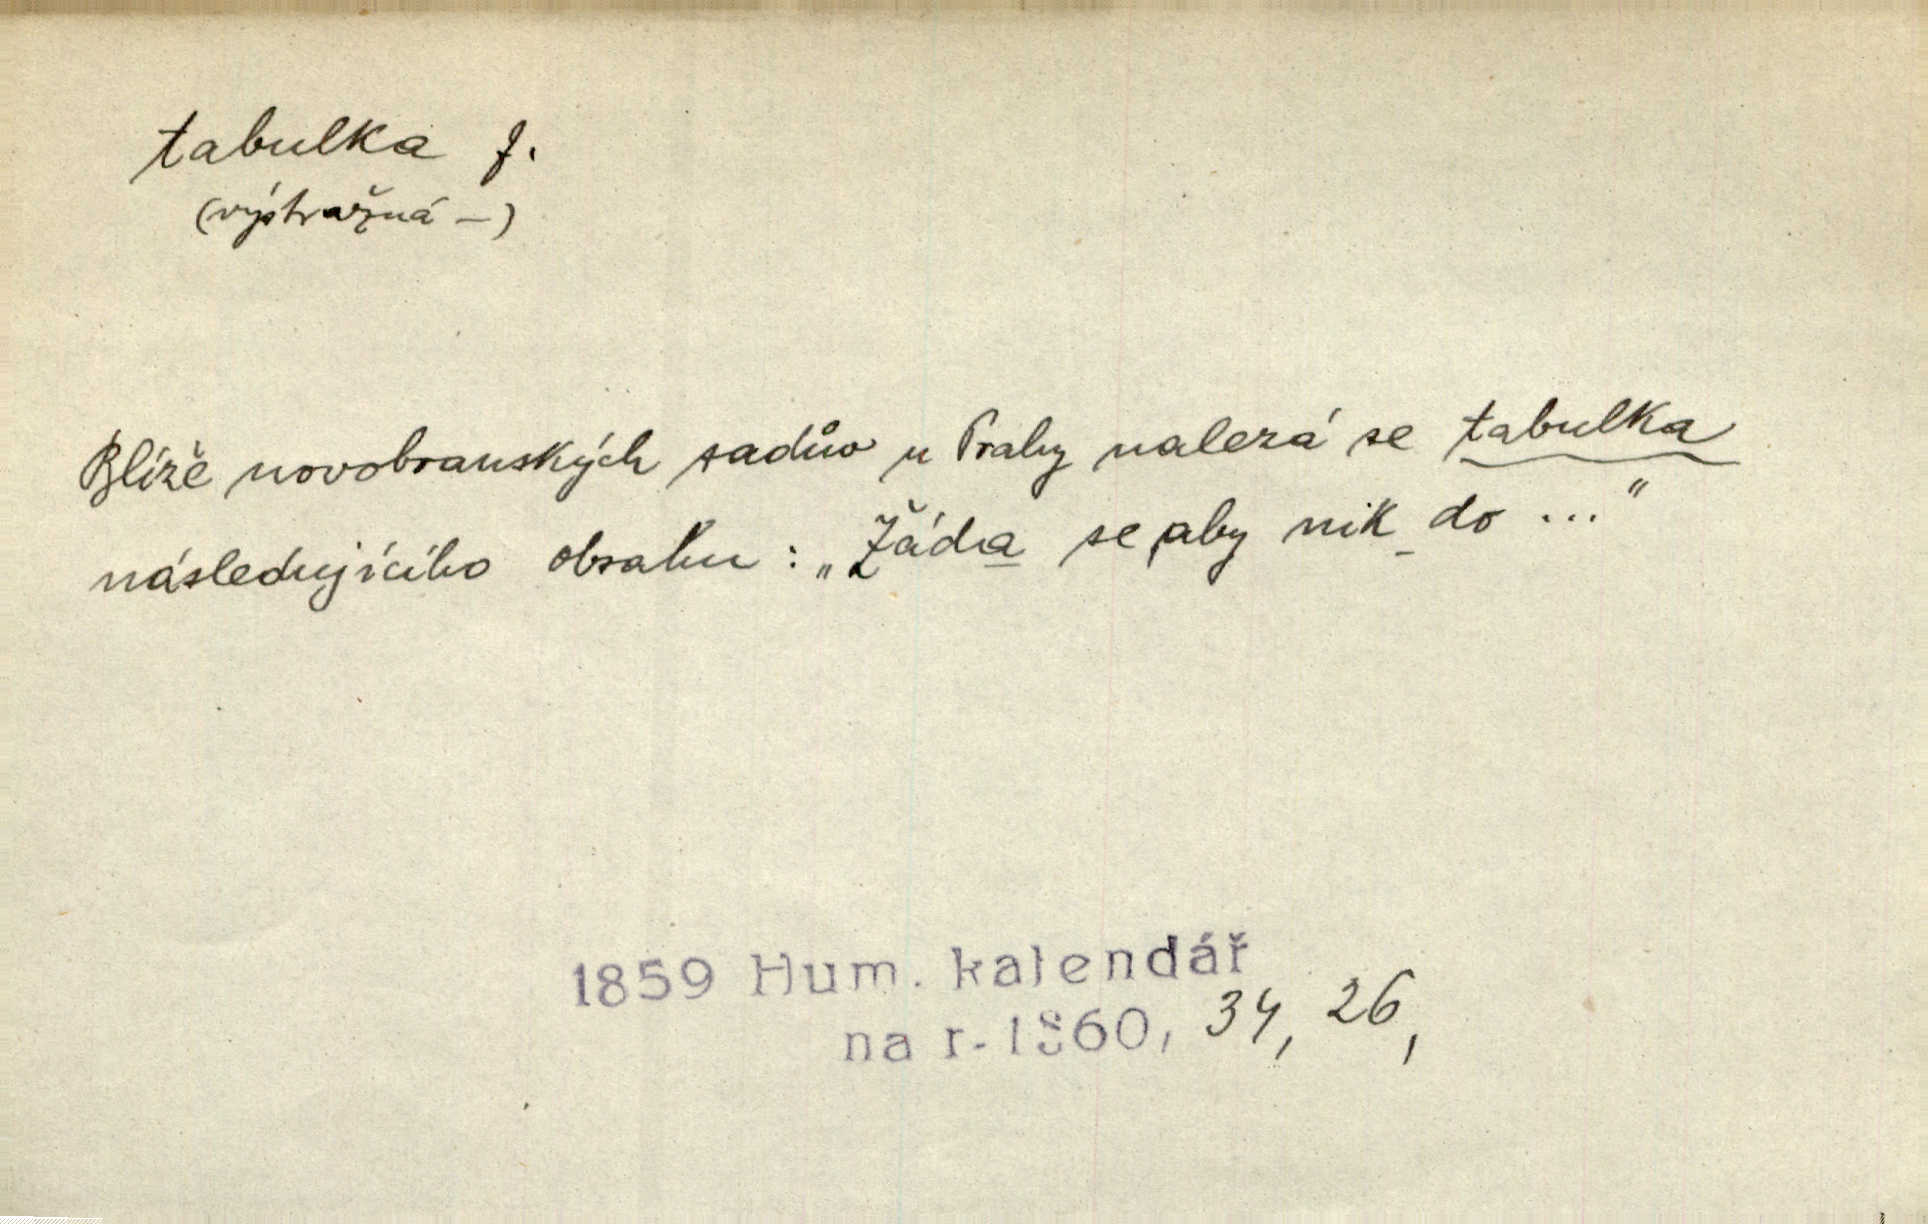 tabulka f.
(výstražná –)
Blíže novobranských sadův u Prahy nalezá se tabulka
následujícího obsahu: „Žádá se, aby nik do ..."
1859 Hum. kalendář
na r. 1860, 34, 26,